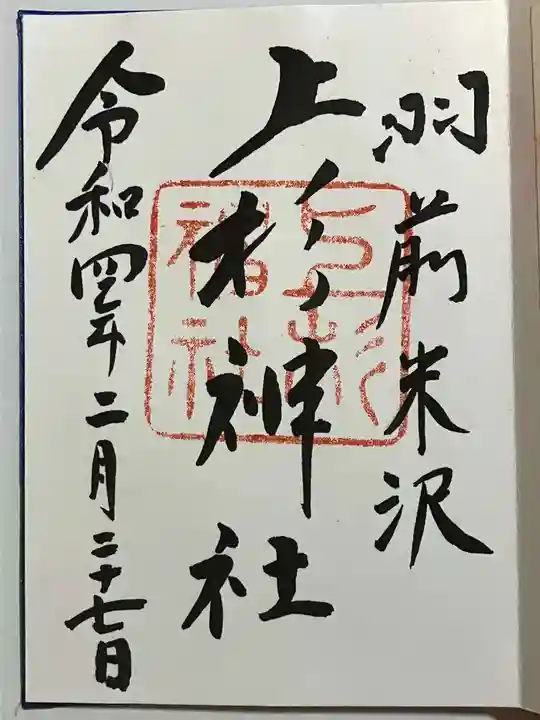 羽前米沢
上杉神社
令和四年二月二十七日
上杉神社